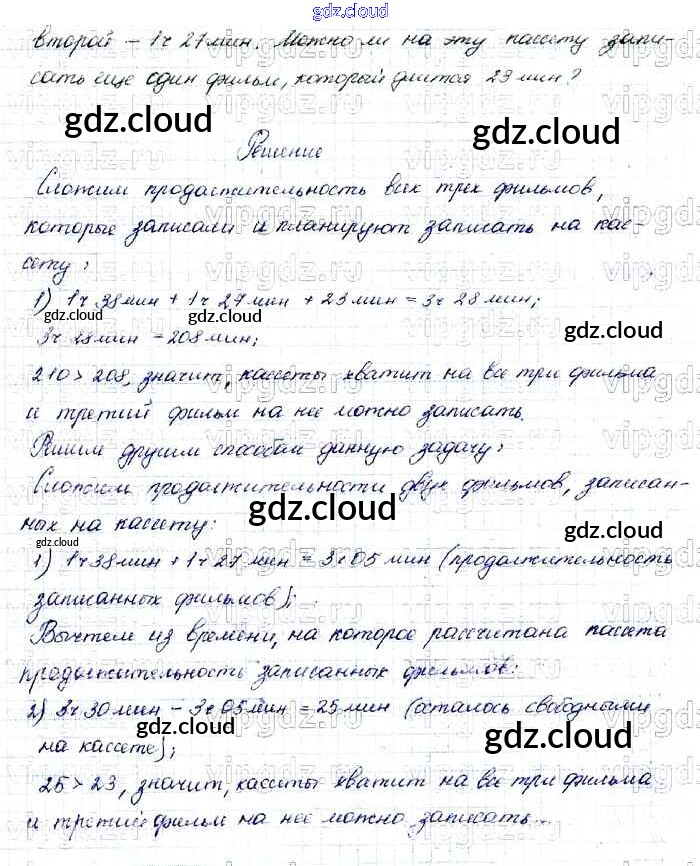 gdz.cloud
второй – 1ч 27мин. Можно ли на эту кассету запи-
сать еще один фильм, который длится 23 мин?
gdz.cloud gdz.cloud
Решение
Сложим продолжительность всех трех фильмов,
которые записали и планируют записать на кас-
сету:
1) 1ч 38мин + 1ч 27мин + 23мин = 3ч 28мин;
gdz.cloud gdz.cloud
3ч 28мин = 208мин;
210 > 208, значит, кассеты хватит на все три фильма
и третий фильм на нее можно записать.
Решим другим способом данную задачу:
Сложим продолжительности двух фильмов, записан-
ных на кассету:
gdz.cloud gdz.cloud
gdz.cloud
1) 1ч 38мин + 1ч 27мин = 3ч 05мин (продолжительность
записанных фильмов);
Вычтем из времени, на которое рассчитана кассета
продолжительность записанных фильмов:
2) 3ч 30мин – 3ч 05мин = 25мин (осталось свободными
gdz.cloud gdz.cloud
на кассете);
25 > 23, значит, кассеты хватит на все три фильма
и третий фильм на нее можно записать...